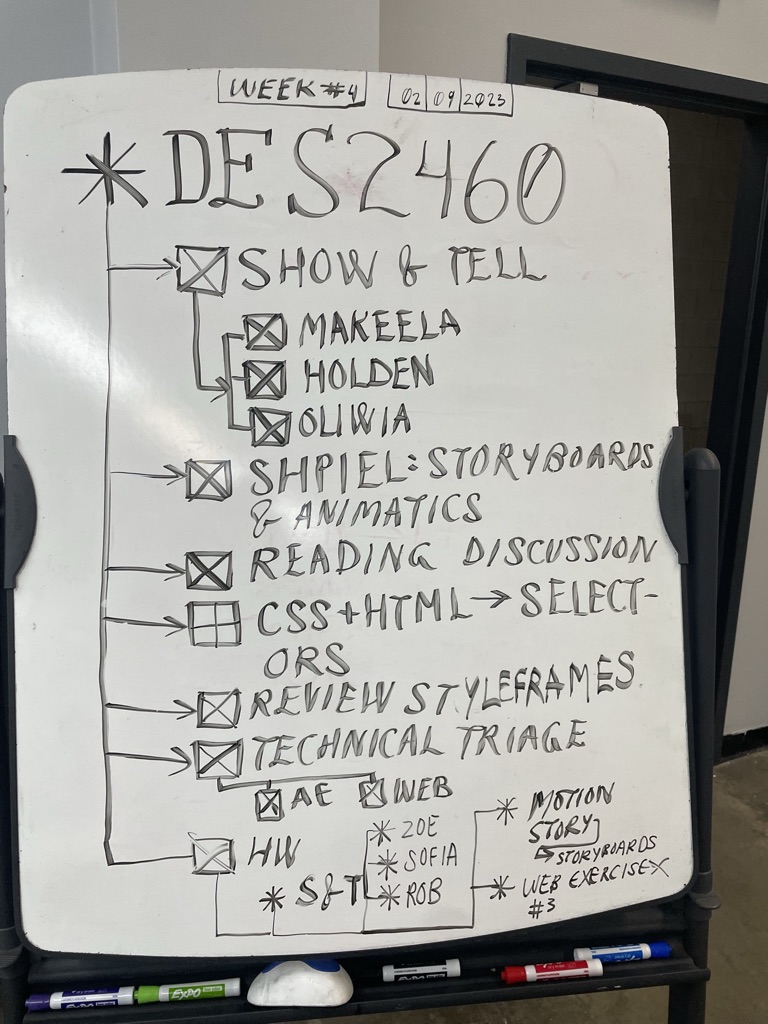 WEEK #4
02 09 2023
* DES2460
SHOW & TELL
MAKEELA
HOLDEN
OLIWIA
SHPIEL: STORYBOARDS
& ANIMATICS
READING DISCUSSION
CSS+HTML → SELECT-
ORS
REVIEW STYLEFRAMES
TECHNICAL TRIAGE
AE
WEB
HW
* S&T
* ZOE
* SOFIA
* ROB
* MOTION
STORY
→ STORYBOARDS
* WEB EXERCISE
#3
EXPO